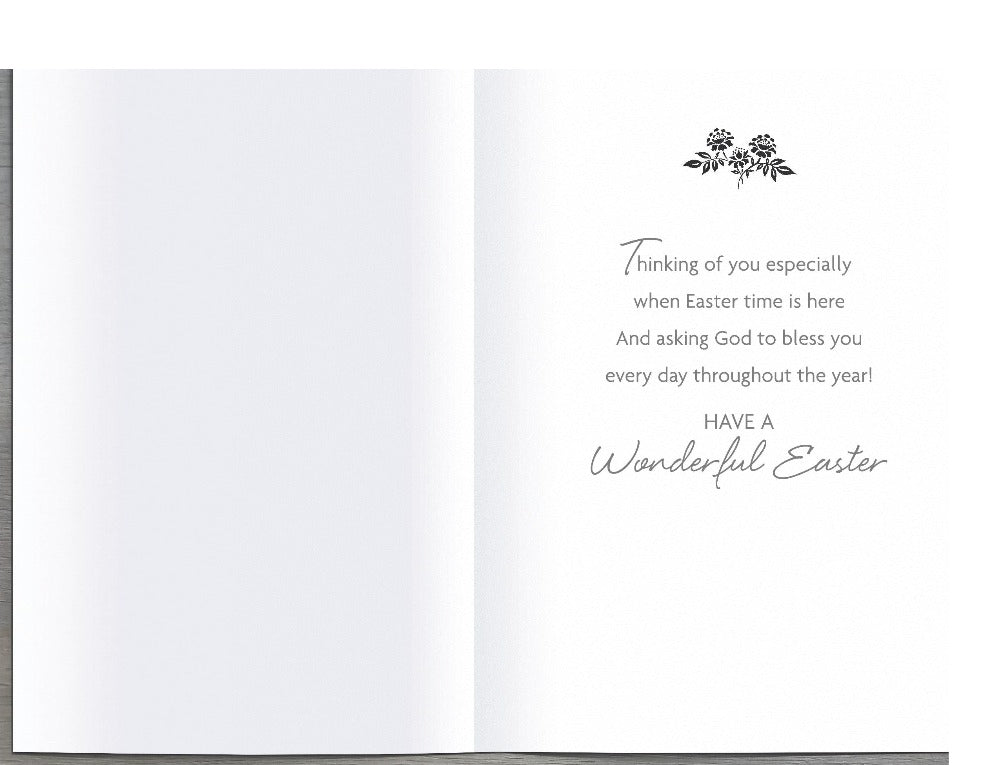 Thinking of you especially
when Easter time is here
And asking God to bless you
every day throughout the year!
HAVE A
Wonderful Easter